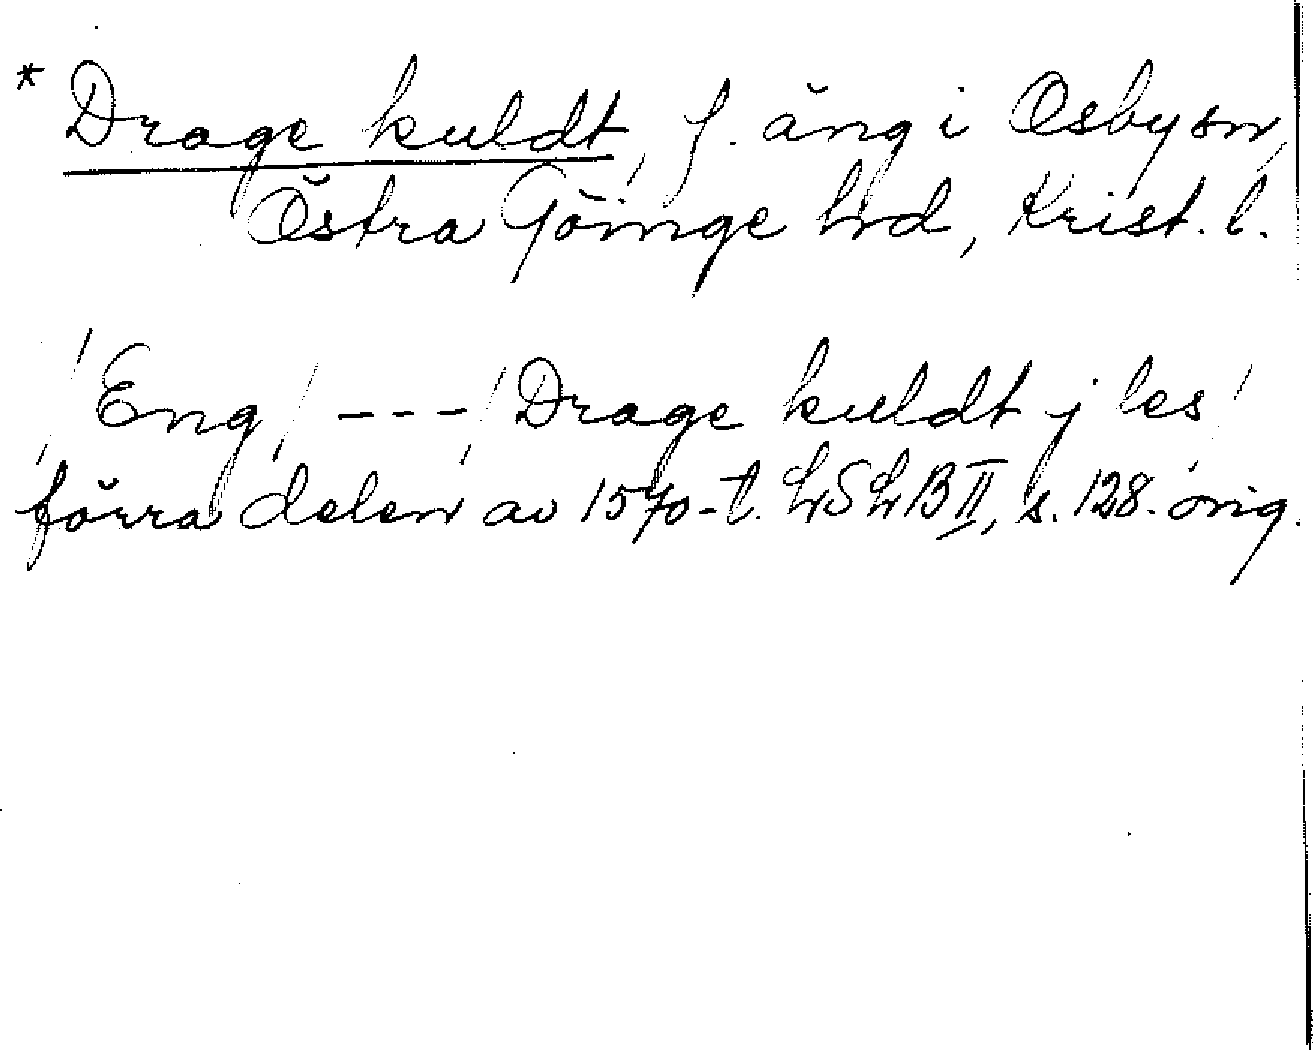 * Drage kuldt, f. äng i Osby sn,
Östra Göinge hrd, Krist. l.
/Eng/ ---/Drage kuldt j les/
förra delen av 1570-t. LSLB II, s. 128. orig.